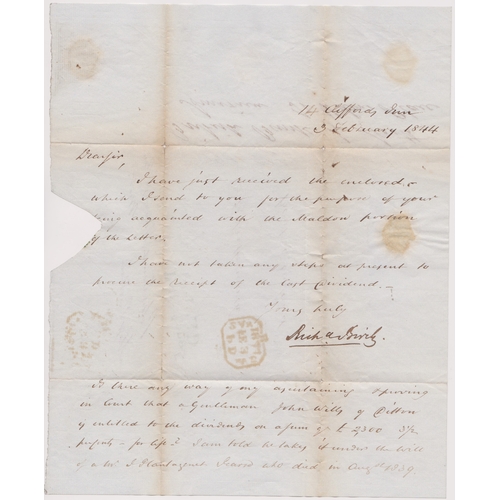 14 Cliffords Inn
3 February 1844
Dear Sir,
I have just received the enclosed
which I send to you for the purpose of your
being acquainted with the Maldon portion
of the Letter.
I have not taken any steps at present to
procure the receipt of the last Dividend. —
Yours truly
Richd Birch
Is there any way of my ascertaining &
in Court that a Gentleman John Wills of
is entitled to the dividends on a sum of £ 2,300 3½
p cents - for life? I am told he takes it under the Will
of a Mr J Plantagenet who died in Augt 1839.